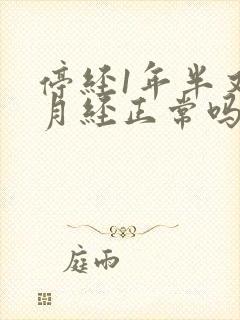 停经1年半又
月经正常吗
庭雨